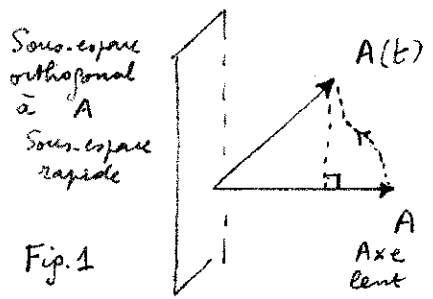 Sous-espace
orthogonal
à A
Sous-espace
rapide
Fig. 1
A(t)
A
Axe
lent